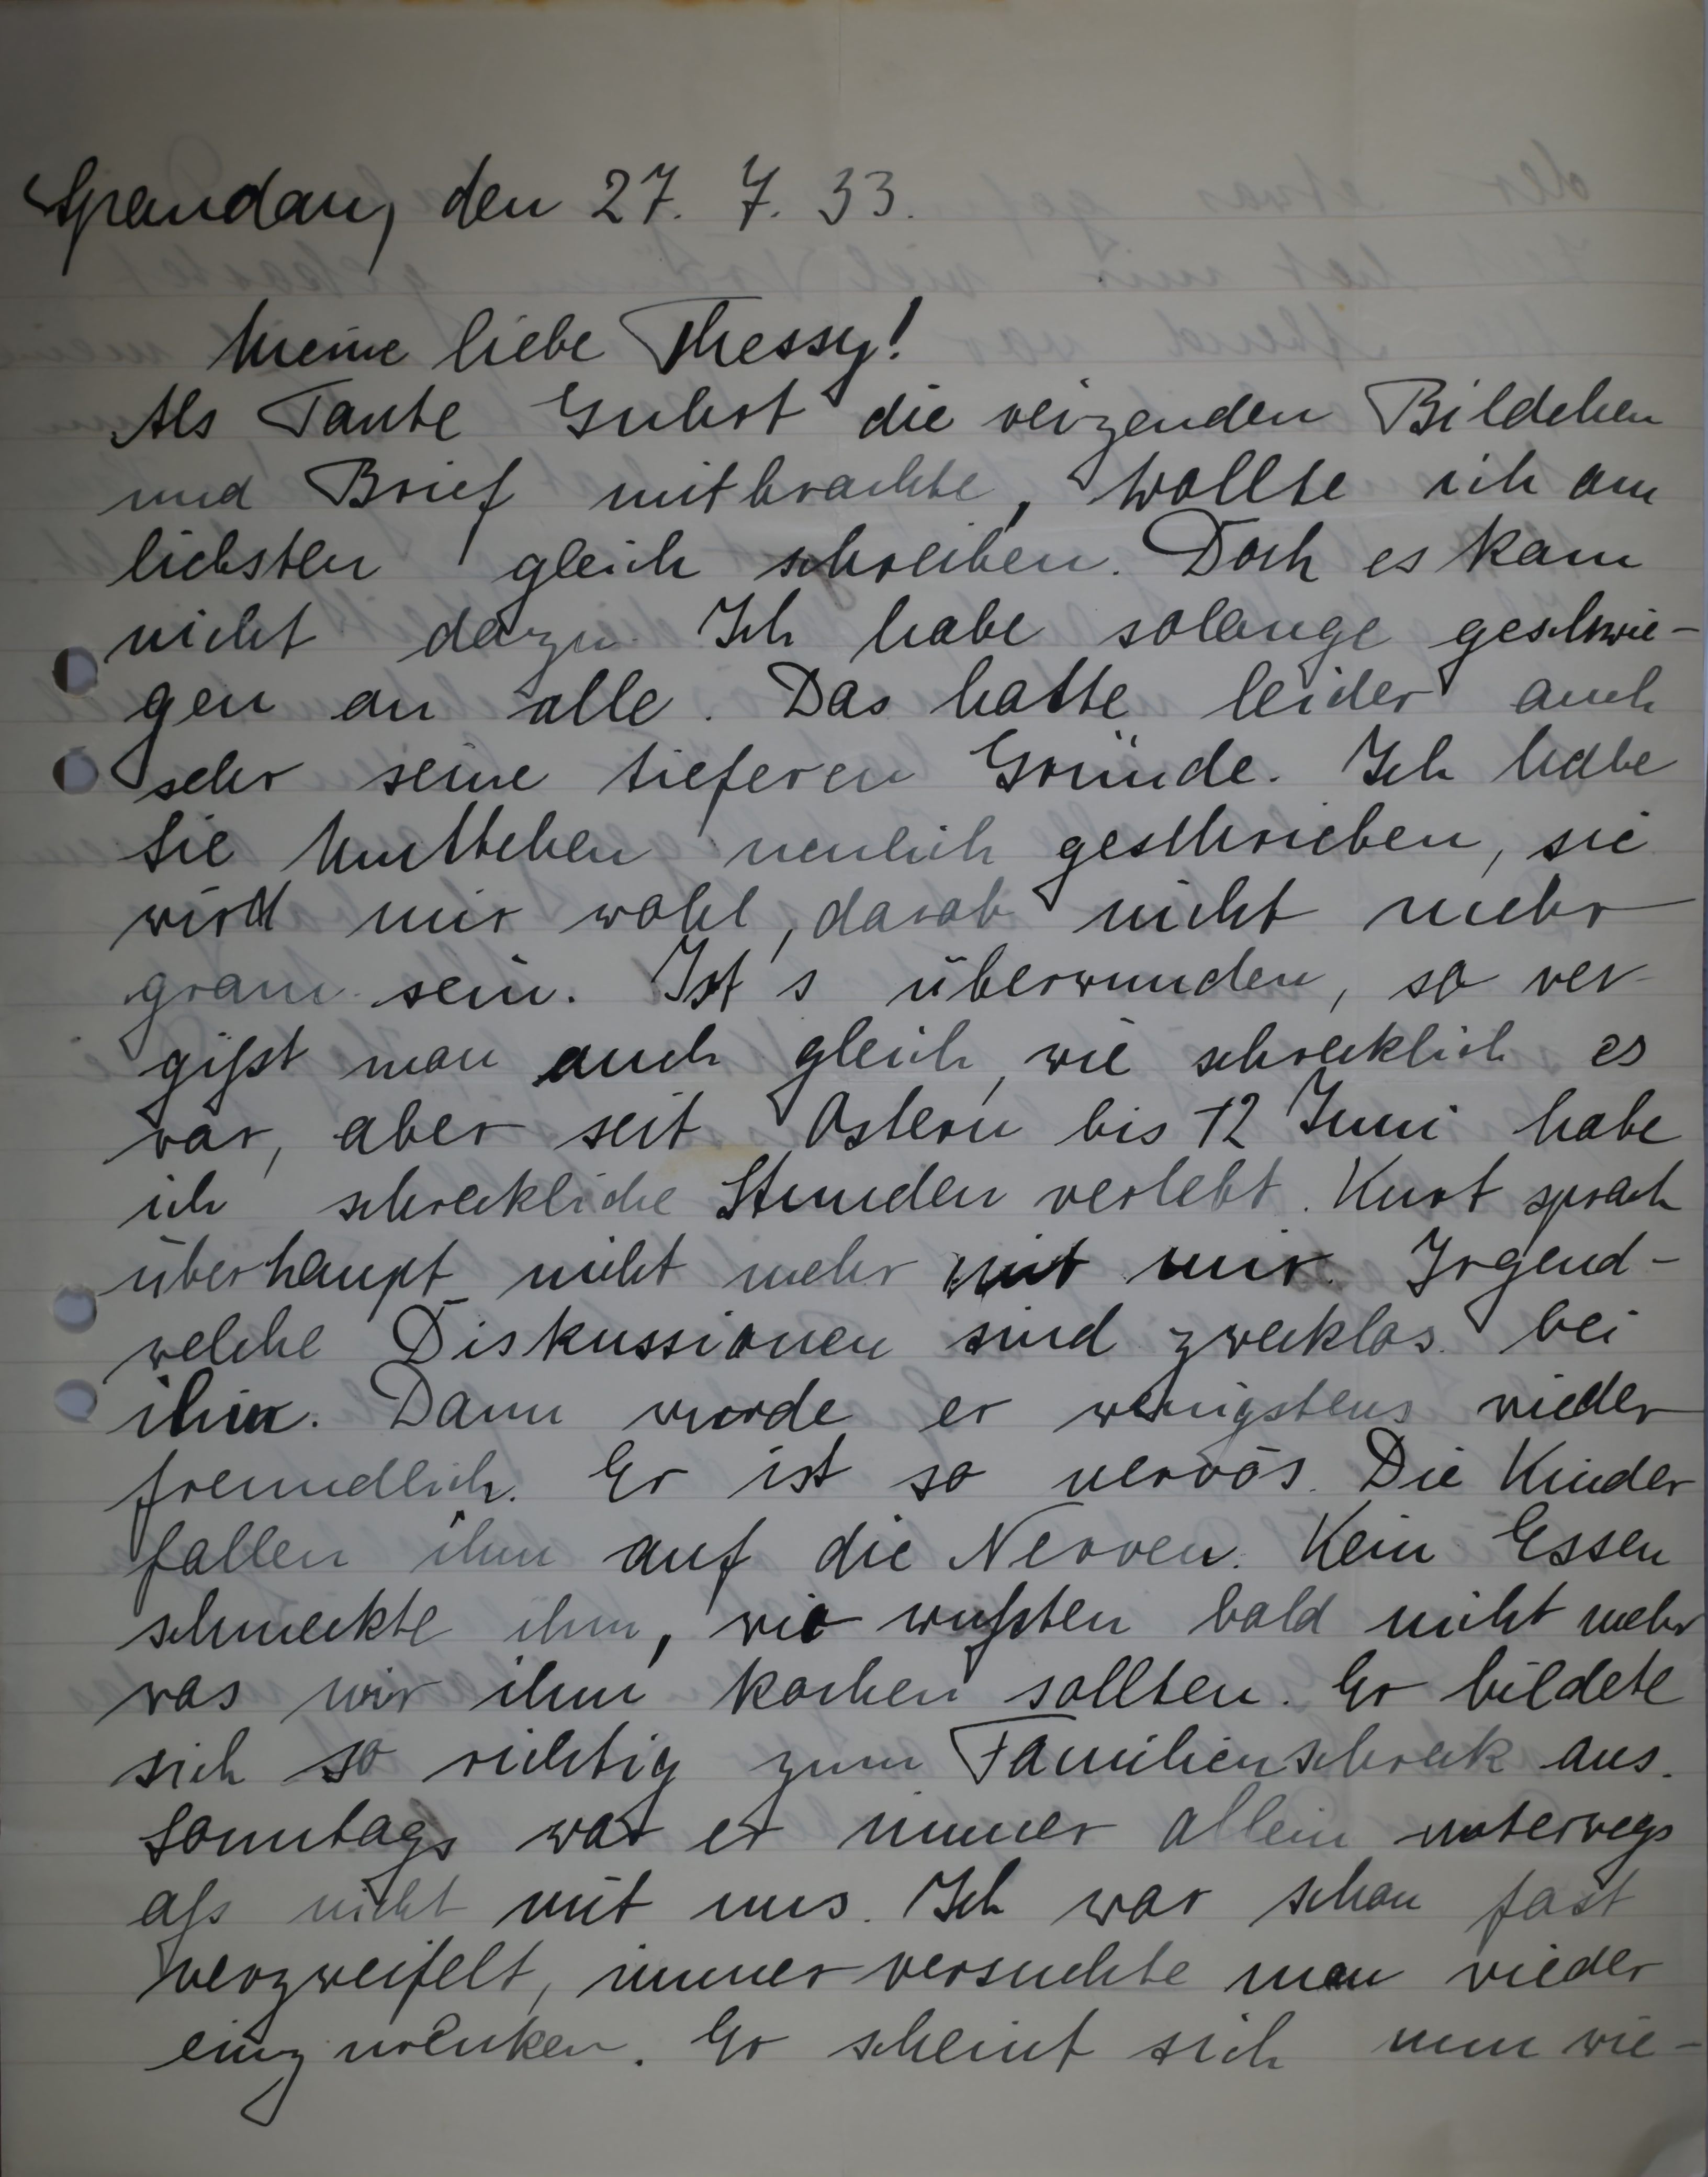 Spandau, den 27. 7. 33.
Meine liebe Thessy!
Als Tante Guhrt die reizenden Bildchen
und Brief mitbrachte, wollte ich am
liebsten gleich schreiben. Doch es kam
nicht dazu. Ich habe solange geschwie-
gen an alle. Das hatte leider auch
sehr seine tieferen Gründe. Ich habe
Sie Muttchen neulich geschrieben, sie
wird mir wohl, darob nicht mehr
gram sein. Ist s überwunden, so ver
gißt man auch gleich, wie schrecklich es
war, aber seit Ostern bis 12 Juni habe
ich schreckliche Stunden verlebt. Kurt sprach
überhaupt nicht mehr mit mir. Irgend-
welche Diskussionen sind zwecklos bei
ihm. Dann wurde er wenigstens wieder
freundlich. Er ist so nervös. Die Kinder
fallen ihm auf die Nerven. Kein Essen
schmeckte ihm, wir wußten bald nicht mehr
was wir ihm kochen sollten. Er bildete
sich so richtig zum Familienschreck aus.
Sonntags war er immer allein unterwegs
aß nicht mit uns. Ich war schon fast
verzweifelt, immer versuchte man wieder
einzurenken. Er scheint sich nun wie-